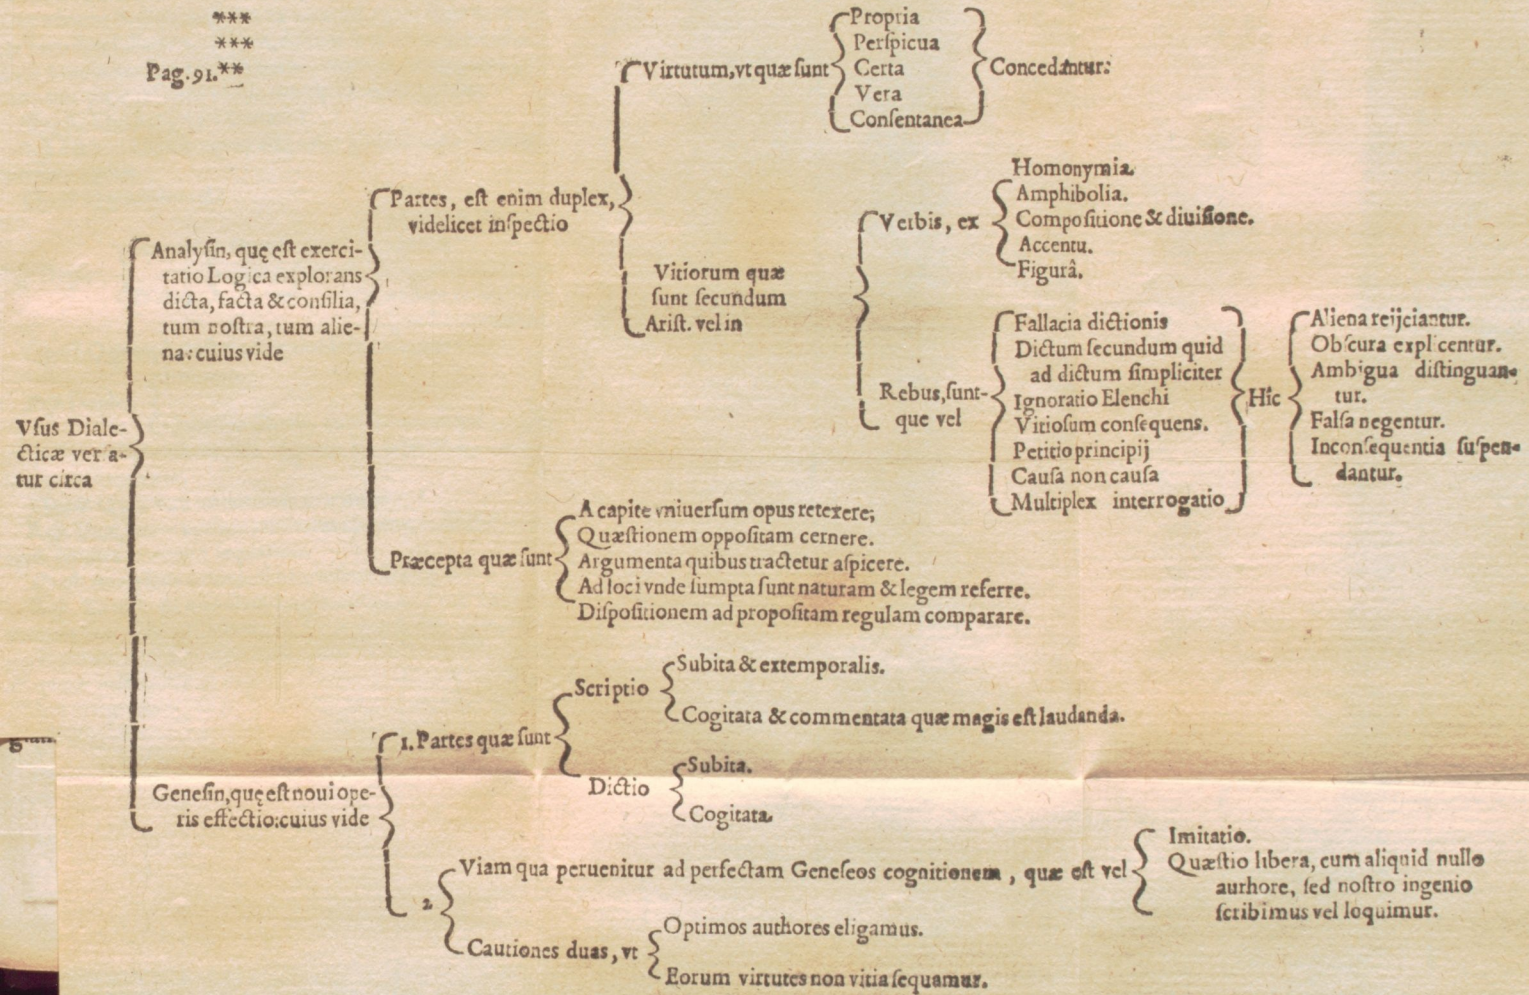 ***
***
Pag. 91.**
Vſus Diale-
cticæ verſa-
tur circa
Analyſin, quę eſt exerci-
tatio Logica explorans
dicta, facta & conſilia,
tum noſtra, tum alie-
na: cuius vide
Partes, eſt enim duplex,
videlicet inſpectio
Virtutum, vt quæ ſunt
Propria
Perſpicua
Certa
Vera
Conſentanea
Concedantur:
Vitiorum quæ
ſunt ſecundum
Ariſt. vel in
Verbis, ex
Homonymia.
Amphibolia.
Compoſitione & diuiſione.
Accentu.
Figurâ.
Rebus, ſunt-
que vel
Fallacia dictionis
Dictum ſecundum quid
ad dictum ſimpliciter
Ignoratio Elenchi
Vitioſum conſequens.
Petitio principij
Cauſa non cauſa
Multiplex interrogatio
Hîc
Aliena reijciantur.
Obſcura explicentur.
Ambigua diſtinguan-
tur.
Falſa negentur.
Inconſequentia ſuſpen-
dantur.
Præcepta quæ ſunt
A capite vniuerſum opus retexere;
Quæſtionem oppoſitam cernere.
Argumenta quibus tractetur aſpicere.
Ad loci vnde ſumpta ſunt naturam & legem referre.
Diſpoſitionem ad propoſitam regulam comparare.
Geneſin, quę eſt noui ope-
ris effectio: cuius vide
1. Partes quæ ſunt
Scriptio
Subita & extemporalis.
Cogitata & commentata quæ magis eſt laudanda.
Dictio
Subita.
Cogitata.
2.
Viam qua peruenitur ad perfectam Geneſeos cognitionem, quæ eſt vel
Imitatio.
Quæſtio libera, cum aliquid nullo
authore, ſed noſtro ingenio
ſcribimus vel loquimur.
Cautiones duas, vt
Optimos authores eligamus.
Eorum virtutes non vitia ſequamur.